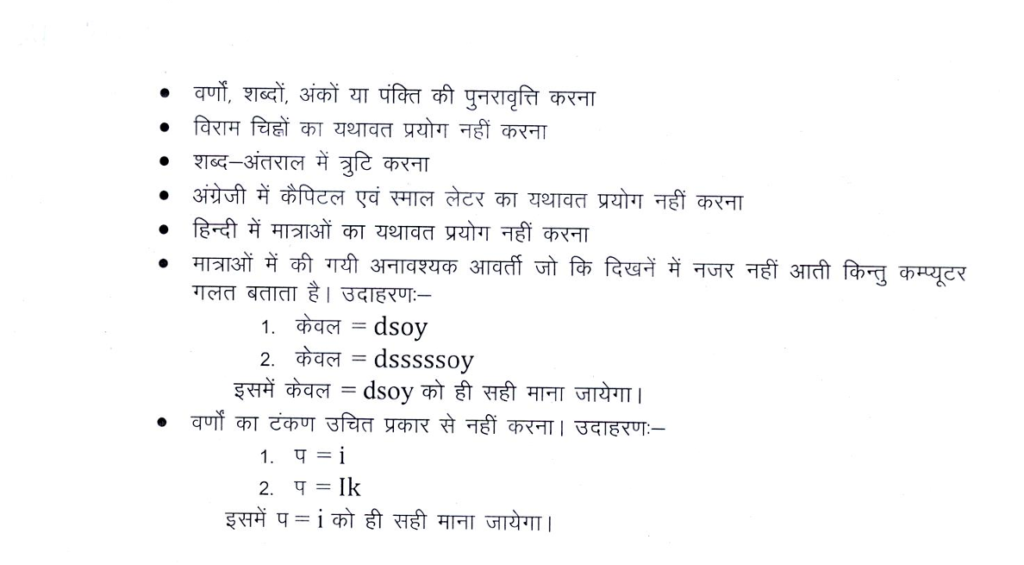 • वर्णों, शब्दों, अंकों या पंक्ति की पुनरावृत्ति करना
• विराम चिह्नों का यथावत प्रयोग नहीं करना
• शब्द–अंतराल में त्रुटि करना
• अंग्रेजी में कैपिटल एवं स्माल लेटर का यथावत प्रयोग नहीं करना
• हिन्दी में मात्राओं का यथावत प्रयोग नहीं करना
• मात्राओं में की गयी अनावश्यक आवर्ती जो कि दिखनें में नजर नहीं आती किन्तु कम्प्यूटर
गलत बताता है। उदाहरणः–
1. केवल = dsoy
2. केवल = dsssssoy
इसमें केवल = dsoy को ही सही माना जायेगा।
• वर्णों का टंकण उचित प्रकार से नहीं करना। उदाहरणः–
1. प = i
2. प = Ik
इसमें प = i को ही सही माना जायेगा।